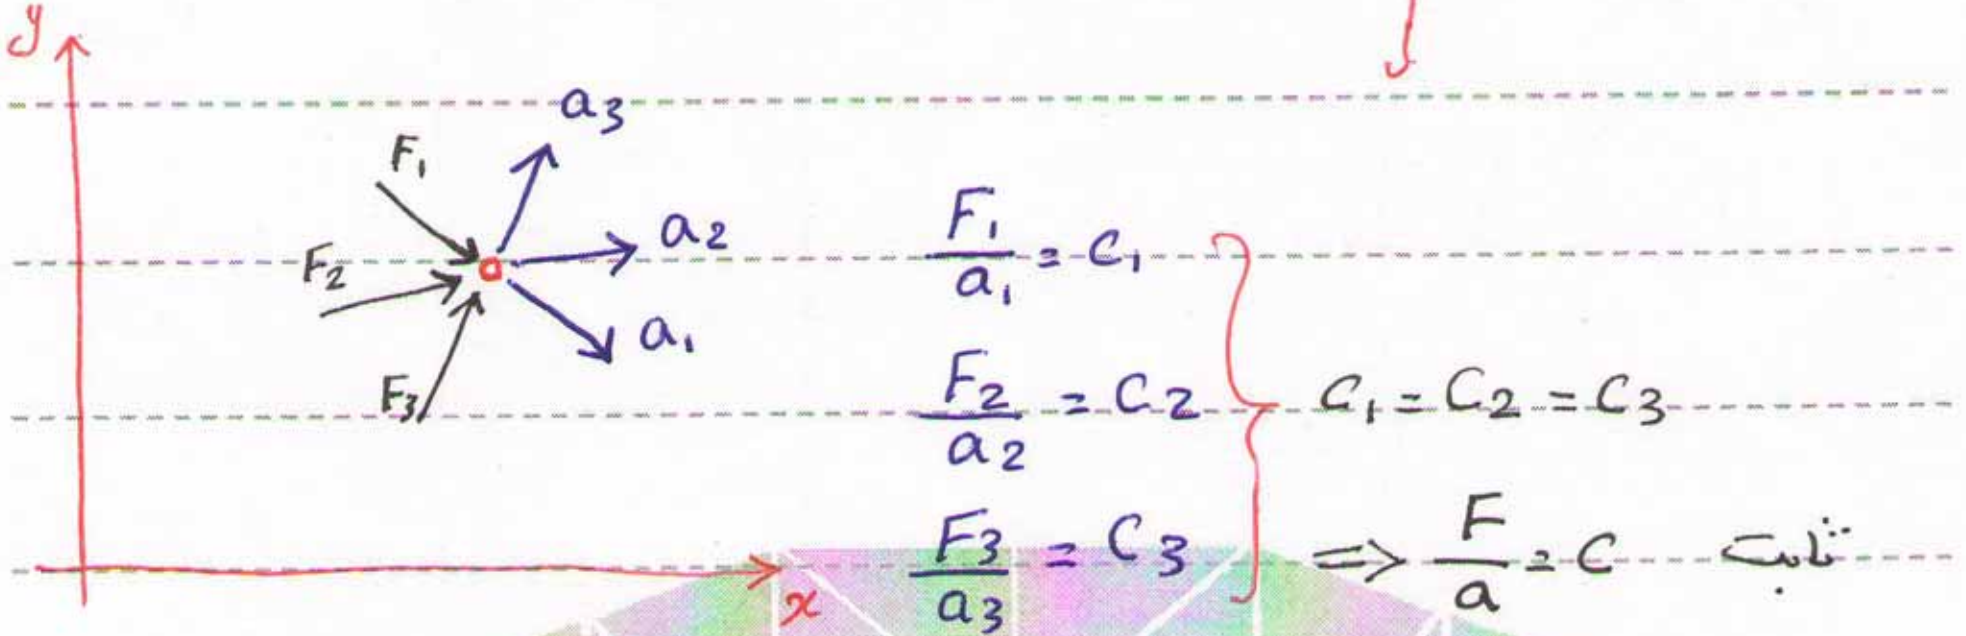 y
a3
F1
a2
F2
a1
F3
x
F1/a1 = C1
F2/a2 = C2
F3/a3 = C3
C1 = C2 = C3
⇒ F/a = C ثابت